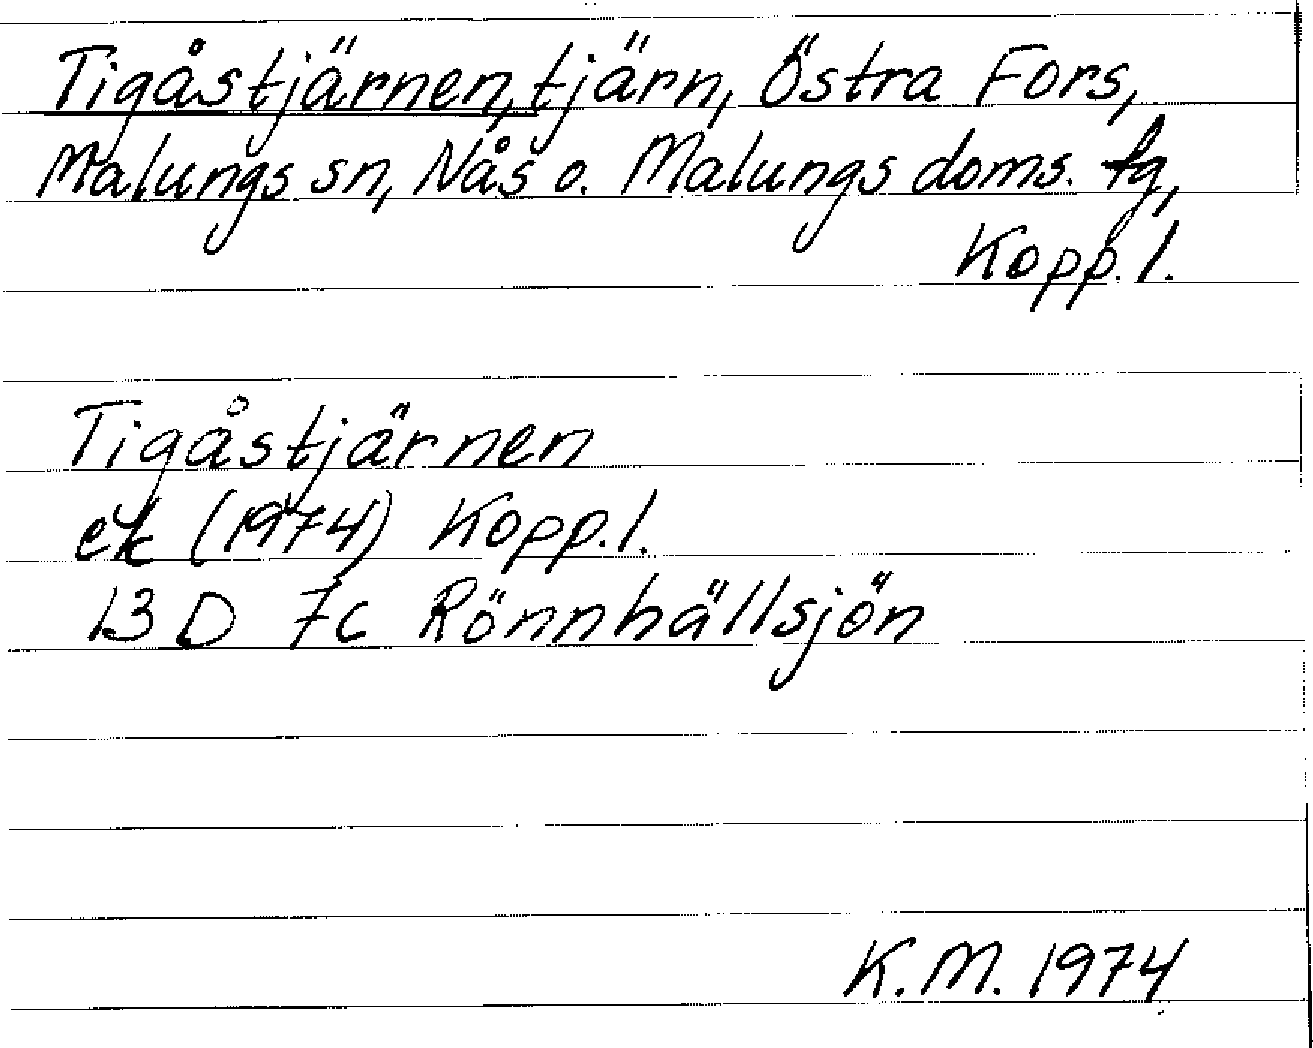 Tigåstjärnen, tjärn, Östra Fors,
Malungs sn, Nås o. Malungs doms. fg,
Kopp. l.
Tigåstjärnen
ek (1974) Kopp. l.
13 D 7c Rönnhällsjön
K.M. 1974